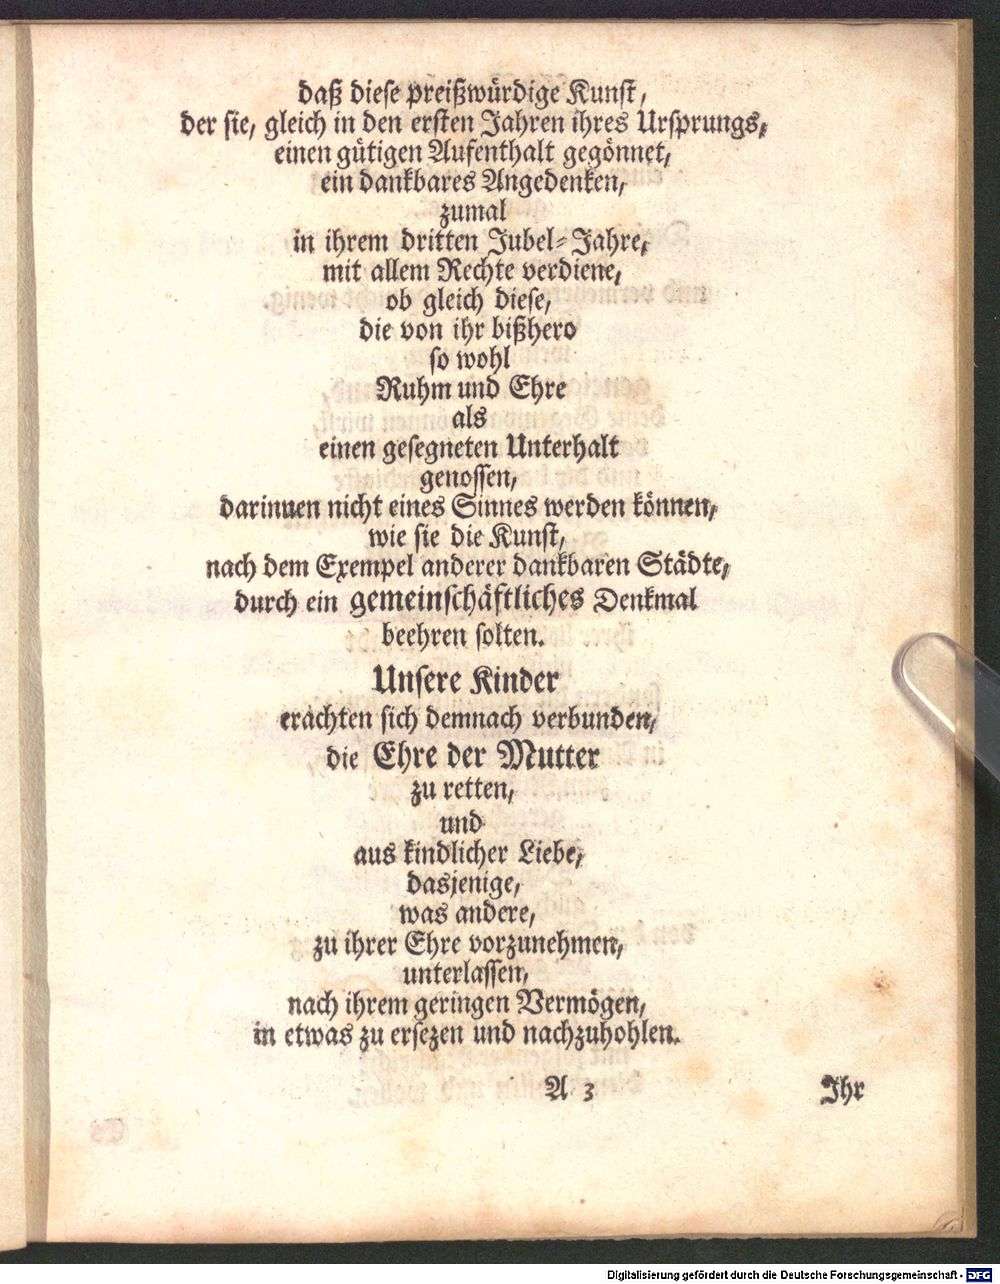 daß diese preißwürdige Kunst,
der sie, gleich in den ersten Jahren ihres Ursprungs,
einen gütigen Aufenthalt gegönnet,
ein dankbares Angedenken,
zumal
in ihrem dritten Jubel-Jahre,
mit allem Rechte verdiene,
ob gleich diese,
die von ihr bißhero
so wohl
Ruhm und Ehre
als
einen gesegneten Unterhalt
genossen,
darinnen nicht eines Sinnes werden können,
wie sie die Kunst,
nach dem Exempel anderer dankbaren Städte,
durch ein gemeinschäftliches Denkmal
beehren solten.
Unsere Kinder
erachten sich demnach verbunden,
die Ehre der Mutter
zu retten,
und
aus kindlicher Liebe,
dasjenige,
was andere,
zu ihrer Ehre vorzunehmen,
unterlassen,
nach ihrem geringen Vermögen,
in etwas zu ersezen und nachzuhohlen.
A 3 Ihr
Digitalisierung gefördert durch die Deutsche Forschungsgemeinschaft - DFG